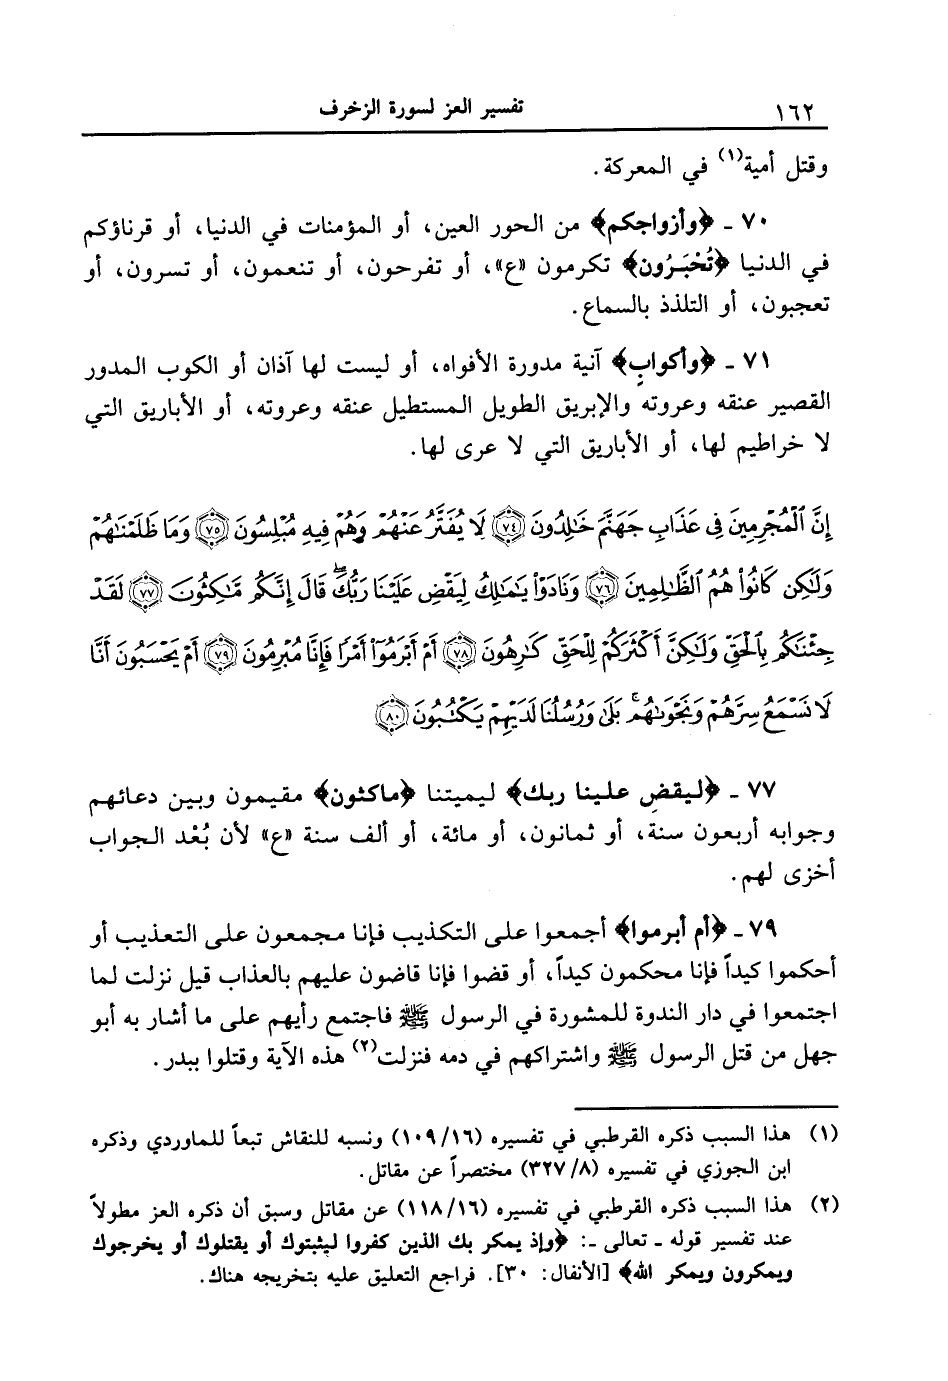 ١٦٢ تفسير العز لسورة الزخرف
وقتل أمية(١) في المعركة.
٧٠ ـ ﴿وأزواجكم﴾ من الحور العين، أو المؤمنات في الدنيا، أو قرناؤكم
في الدنيا ﴿تُحْبَرُون﴾ تكرمون «ع»، أو تفرحون، أو تنعمون، أو تسرون، أو
تعجبون، أو التلذذ بالسماع.
٧١ ـ ﴿وأكوابٍ﴾ آنية مدورة الأفواه، أو ليست لها آذان أو الكوب المدور
القصير عنقه وعروته والإبريق الطويل المستطيل عنقه وعروته، أو الأباريق التي
لا خراطيم لها، أو الأباريق التي لا عرى لها.
إِنَّ ٱلْمُجْرِمِينَ فِى عَذَابِ جَهَنَّمَ خَٰلِدُونَ ﴿٧٤﴾ لَا يُفَتَّرُ عَنْهُمْ وَهُمْ فِيهِ مُبْلِسُونَ ﴿٧٥﴾ وَمَا ظَلَمْنَٰهُمْ
وَلَٰكِن كَانُوا۟ هُمُ ٱلظَّٰلِمِينَ ﴿٧٦﴾ وَنَادَوْا۟ يَٰمَٰلِكُ لِيَقْضِ عَلَيْنَا رَبُّكَ ۖ قَالَ إِنَّكُم مَّٰكِثُونَ ﴿٧٧﴾ لَقَدْ
جِئْنَٰكُم بِٱلْحَقِّ وَلَٰكِنَّ أَكْثَرَكُمْ لِلْحَقِّ كَٰرِهُونَ ﴿٧٨﴾ أَمْ أَبْرَمُوٓا۟ أَمْرًا فَإِنَّا مُبْرِمُونَ ﴿٧٩﴾ أَمْ يَحْسَبُونَ أَنَّا
لَا نَسْمَعُ سِرَّهُمْ وَنَجْوَىٰهُم ۚ بَلَىٰ وَرُسُلُنَا لَدَيْهِمْ يَكْتُبُونَ ﴿٨٠﴾
٧٧ ـ ﴿ليقضِ علينا ربك﴾ ليميتنا ﴿ماكثون﴾ مقيمون وبين دعائهم
وجوابه أربعون سنة، أو ثمانون، أو مائة، أو ألف سنة «ع» لأن بُعْد الجواب
أخزى لهم.
٧٩ ـ ﴿أم أبرموا﴾ أجمعوا على التكذيب فإنا مجمعون على التعذيب أو
أحكموا كيداً فإنا محكمون كيداً، أو قضوا فإنا قاضون عليهم بالعذاب قيل نزلت لما
اجتمعوا في دار الندوة للمشورة في الرسول ﷺ فاجتمع رأيهم على ما أشار به أبو
جهل من قتل الرسول ﷺ واشتراكهم في دمه فنزلت(٢) هذه الآية وقتلوا ببدر.
(١) هذا السبب ذكره القرطبي في تفسيره (١٠٩/١٦) ونسبه للنقاش تبعاً للماوردي وذكره
ابن الجوزي في تفسيره (٣٢٧/٨) مختصراً عن مقاتل.
(٢) هذا السبب ذكره القرطبي في تفسيره (١١٨/١٦) عن مقاتل وسبق أن ذكره العز مطولاً
عند تفسير قوله ـ تعالى ـ: ﴿وإذ يمكر بك الذين كفروا ليثبتوك أو يقتلوك أو يخرجوك
ويمكرون ويمكر الله﴾ [الأنفال: ٣٠]. فراجع التعليق عليه بتخريجه هناك.